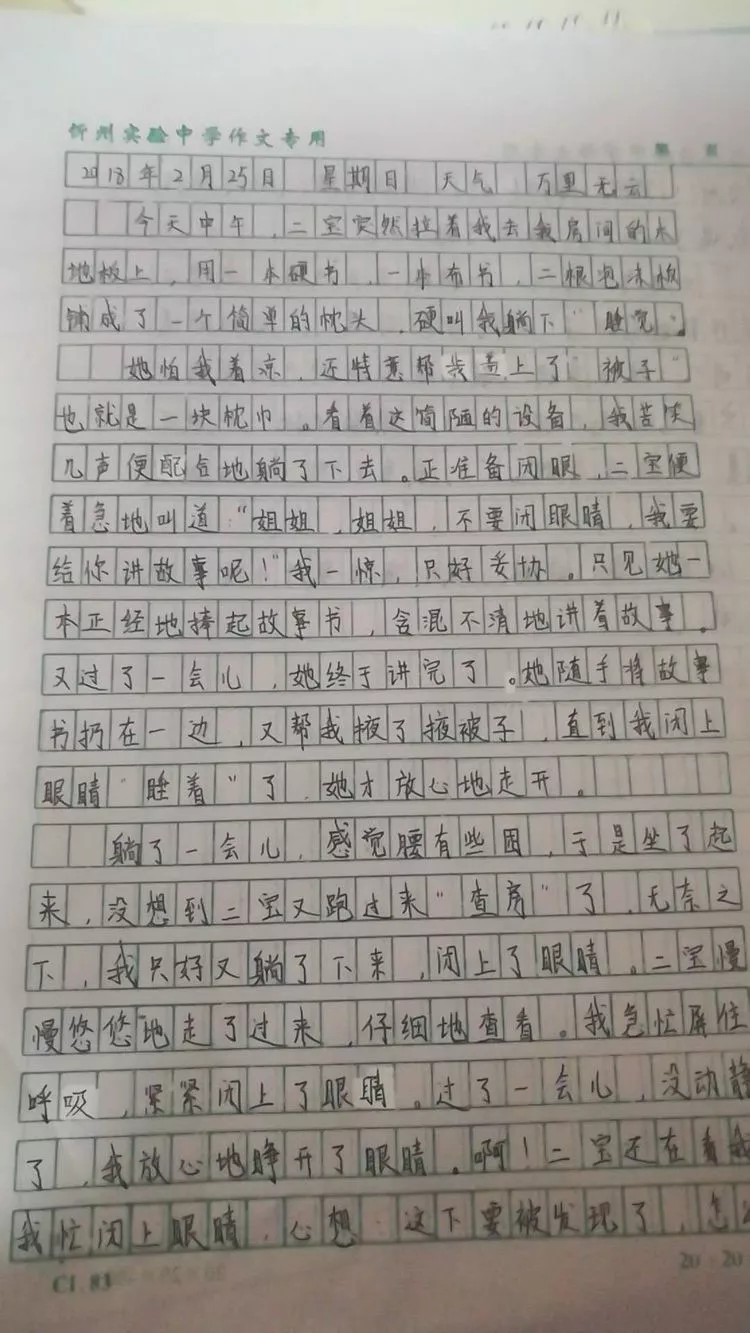 忻州实验中学作文专用
第 页
2018年2月25日 星期日 天气 万里无云
今天中午,二宝突然拉着我去我房间的木
地板上,用一本硬书,一本布书,二根泡沫板
铺成了一个简单的枕头,硬叫我躺下“睡觉”。
她怕我着凉,还特意帮我盖上了“被子”
也就是一块枕巾。看着这简陋的设备,我苦笑
几声便配合地躺了下去。正准备闭眼,二宝便
着急地叫道:“姐姐,姐姐,不要闭眼睛,我要
给你讲故事呢!”我一惊,只好妥协。只见她一
本正经地捧起故事书,含混不清地讲着故事。
又过了一会儿,她终于讲完了。她随手将故事
书扔在一边,又帮我掖了掖被子,直到我闭上
眼睛“睡着”了,她才放心地走开。
躺了一会儿,感觉腰有些困,于是坐了起
来,没想到二宝又跑过来“查房”了,无奈之
下,我只好又躺了下来,闭上了眼睛。二宝慢
慢悠悠地走了过来,仔细地查看。我急忙屏住
呼吸,紧紧闭上了眼睛。过了一会儿,没动静
了,我放心地睁开了眼睛。啊!二宝还在看我
我忙闭上眼睛,心想:这下要被发现了,怎
CL 83
20×20